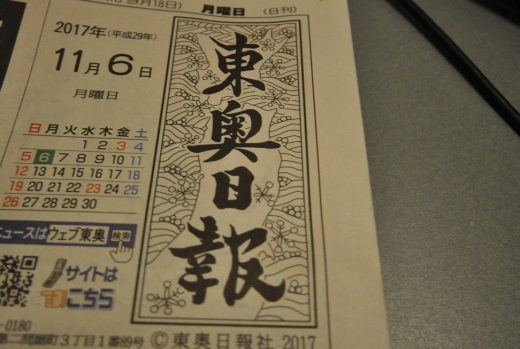 9月18日) 月曜日 (日刊)
2017年(平成29年)
11月6日
月曜日
東奥日報
日 月 火 水 木 金 土
1 2 3 4
5 6 7 8 9 10 11
12 13 14 15 16 17 18
19 20 21 22 23 24 25
26 27 28 29 30
ニュースはウェブ東奥 検索
サイトは
こちら
-0180
第二問屋町3丁目1番89号
©東奥日報社 2017